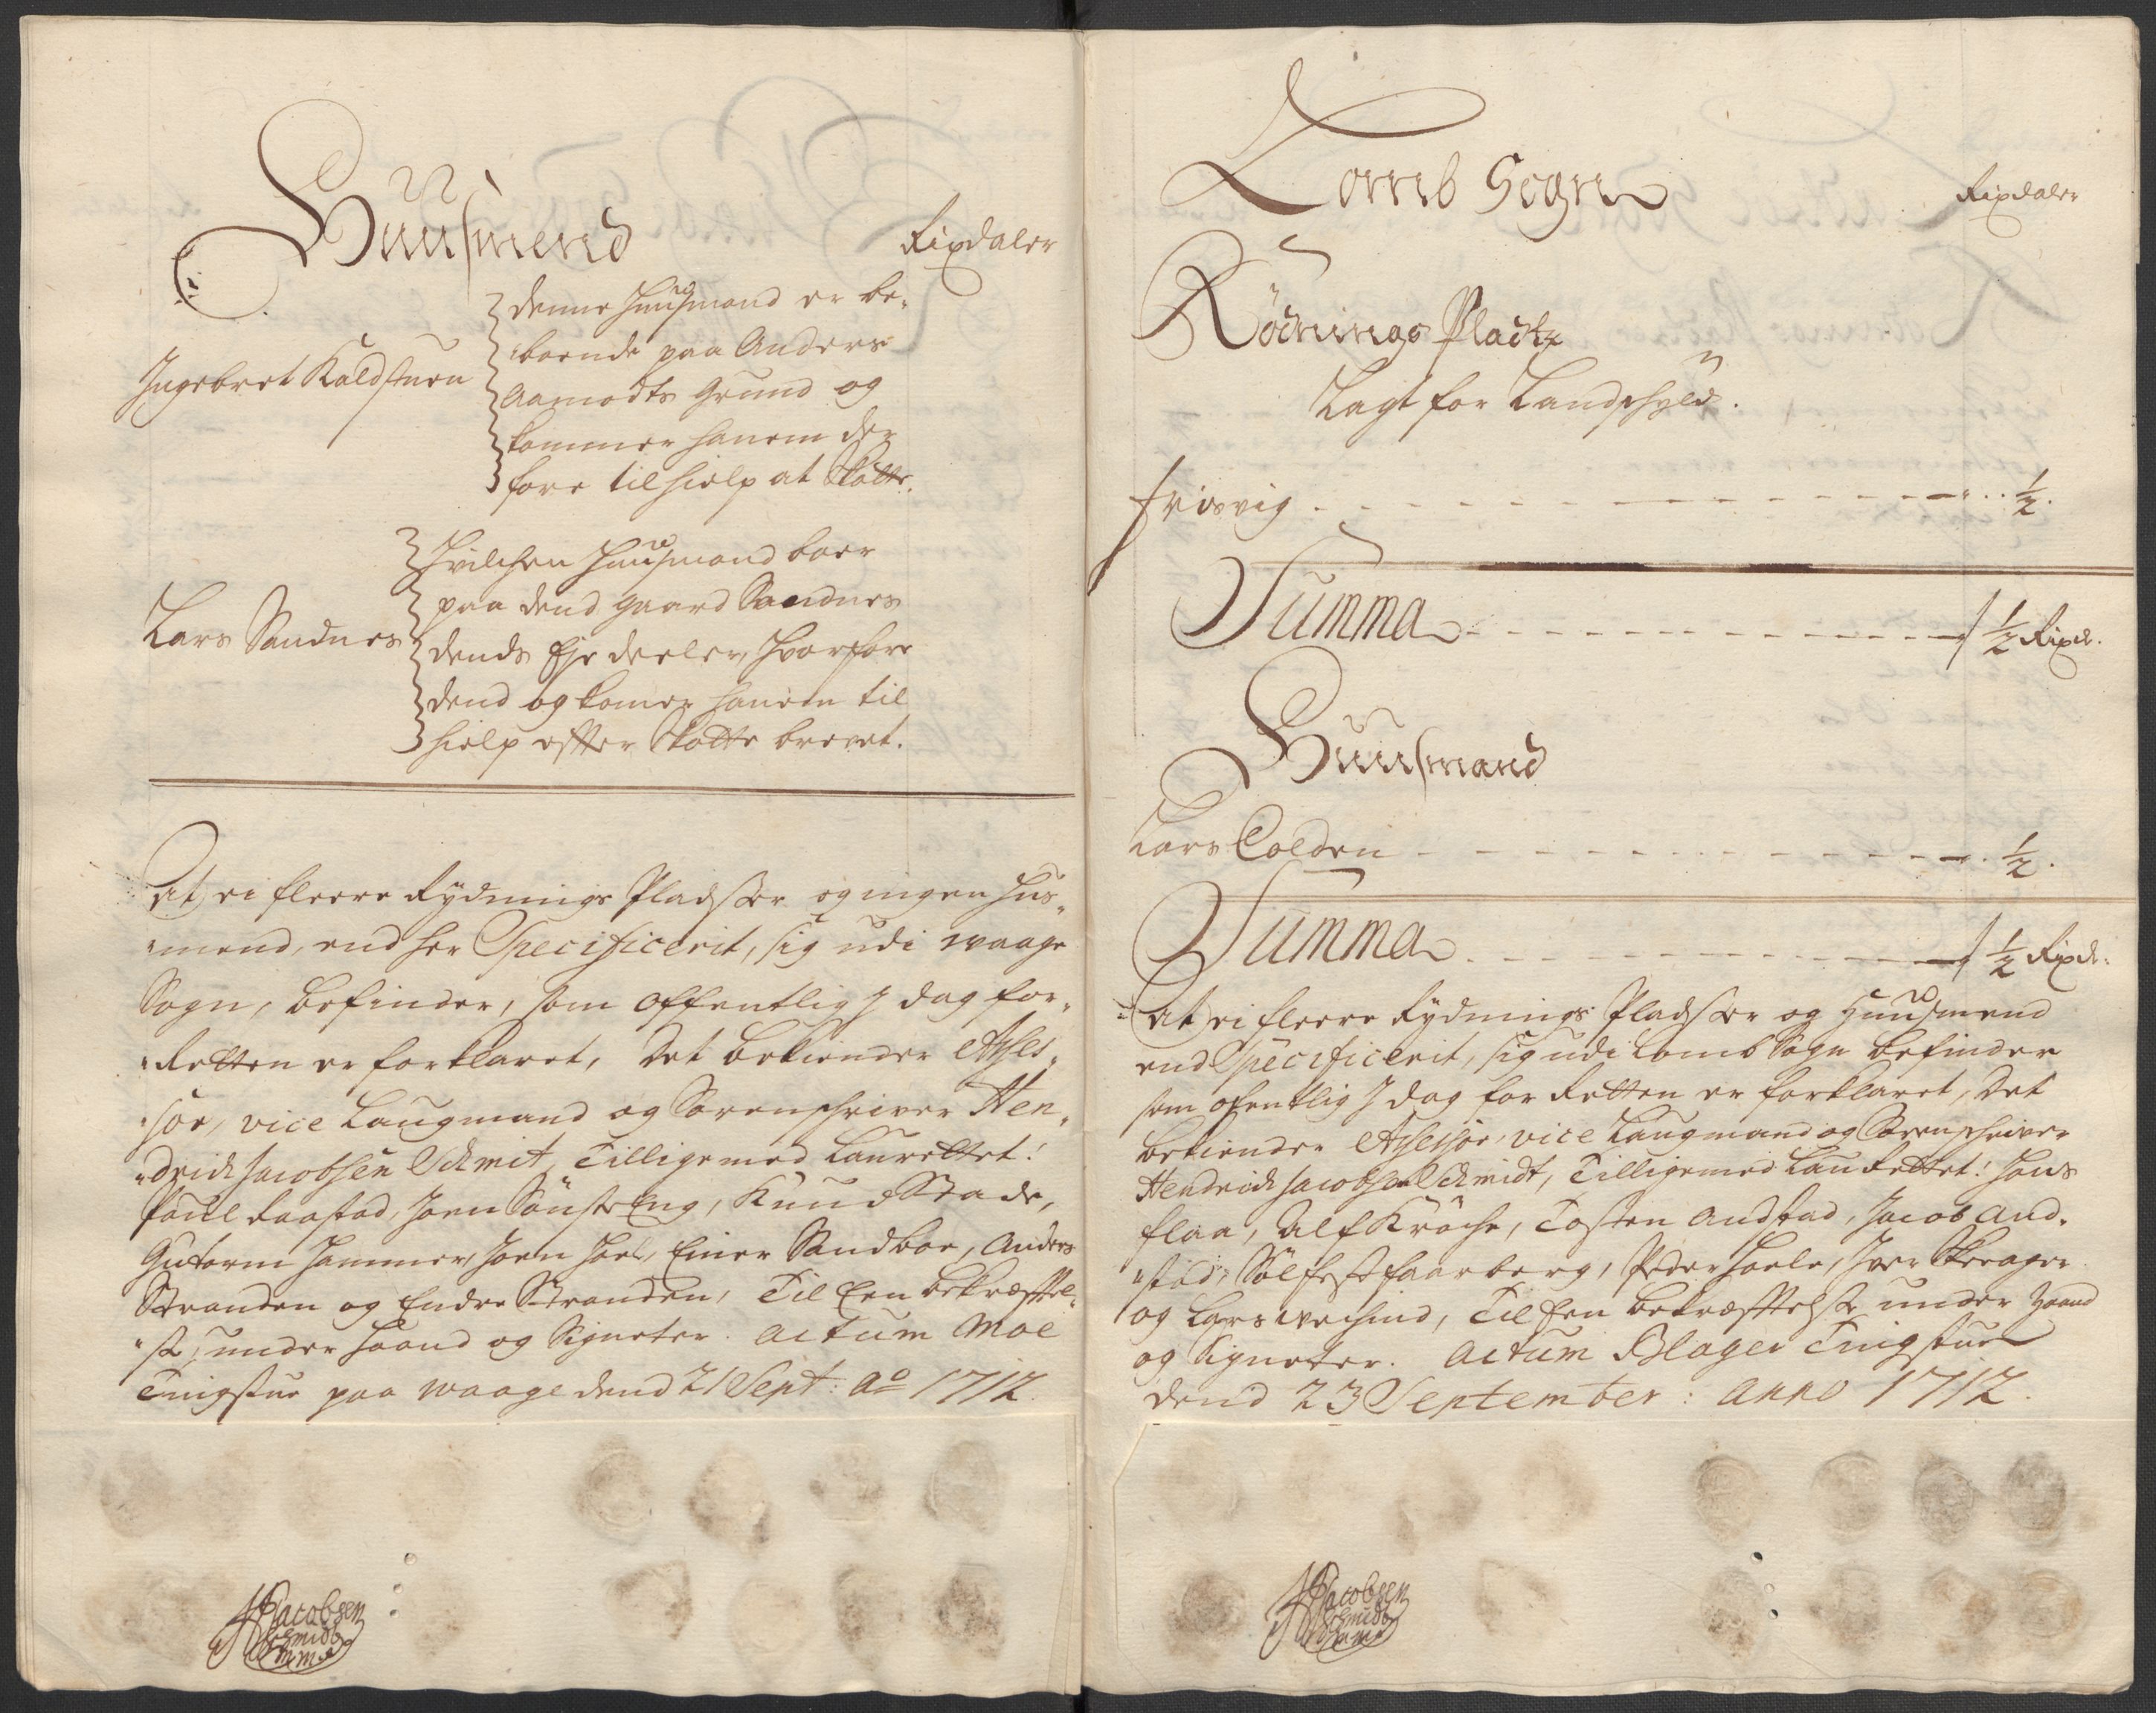 Huusmend
Rixdaler
Ingebret Kaldstuen
denne Huusmand er be-
boende paa Anders
Aamodts Grund og
kommer hanem der
fore til hielp at Skatte.
Lars Sandnes
Hvilchen Huusmand boer
paa dend gaard Sandnes
dends Eje deeler, hvorfore
dend og komer hanem til
hielp effter Skatte brevet.
At ei fleere Rydnings Pladsser og ingen Hus-
mend, end her Specificerit, sig udi Waage
Sogn, befinder, som offentlig J dag for
Retten er forklaret, Det bekiender Asses-
sor, vice Laugmand og Sorenschriver Hen-
drich Jacobsen Schmit, Tilligemed Laurettet:
Poul Raastad, Joen Sönsteng, Knud Stade,
Gutorm Hammer, Joen Hoel, Einer Sandboe, Anders
Stranden og Endre Stranden, Til Een bekræfftel-
se, under Haand og Signeter. Actum Moe
Tingstue paa Waage dend 21 Sept: Ao 1712.
HJacobsen
Schmidt
mmp
Lomb Sogn
Rixdaler
Rödnings Pladtz
Lagt for Landschyld.
Friisvig - - - ½.
Summa - - - ½ Rixd.
Huusmand
Lars Colden - - - ½.
Summa - - - ½ Rixd.
At ei fleere Rydnings Pladsser og Huusmend
end Specificerit, sig udi Lomb Sogn befinder
som ofentlig J dag for Retten er forklaret, Det
bekiender Assessor, vice Laugmand og Sorenschriver
Hendrich Jacobsen Schmidt, Tilligemed Lau Rettet: Hans
Flaa, Alf Kröche, Tosten Andstad, Jacob And-
stad, Sölfest Faarberg, Peder Hoele, Iver Skeager
og Lars Weshind, Til Een bekræfftelse under Haand
og Signeter. Actum Blager Tingstue
dend 23 September: Anno 1712.
HJacobsen
Schmidt
mmp